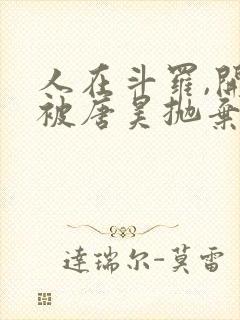 人在斗罗,開
被唐昊抛棄
達瑞尔-莫雷